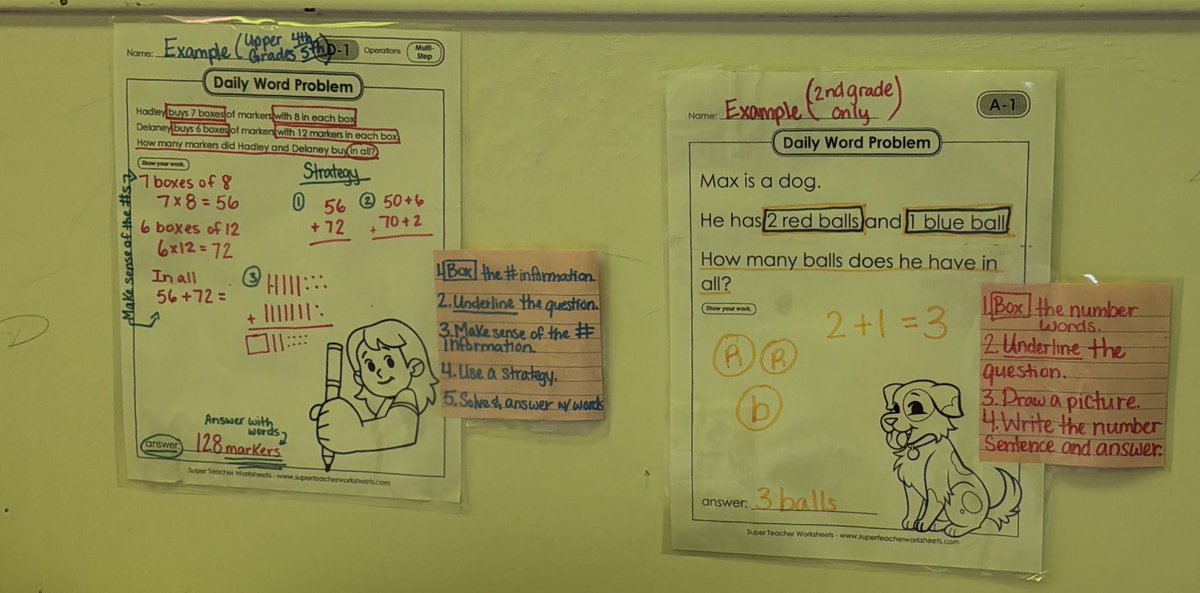 Name: Example (Upper Grades 4th 5th)
D-1 Operations Multi-Step
Daily Word Problem
Hadley buys 7 boxes of markers with 8 in each box.
Delaney buys 6 boxes of markers with 12 markers in each box.
How many markers did Hadley and Delaney buy in all?
Show your work.
Make sense of the #s
7 boxes of 8
7 x 8 = 56
6 boxes of 12
6x12 = 72
In all
56 + 72 =
Strategy
① 56
+ 72
② 50+6
+ 70+2
③
+
Answer with
words
answer: 128 markers
Super Teacher Worksheets - www.superteacherworksheets.com
1. Box the # information.
2. Underline the question.
3. Make sense of the #
information.
4. Use a strategy.
5. Solve & answer w/ words
Name: Example (2nd grade only)
A-1
Daily Word Problem
Max is a dog.
He has 2 red balls and 1 blue ball.
How many balls does he have in
all?
Show your work.
2+1=3
R R
b
answer: 3 balls
Super Teacher Worksheets - www.superteacherworksheets.com
1. Box the number
words.
2. Underline the
question.
3. Draw a picture.
4. Write the number
Sentence and answer.